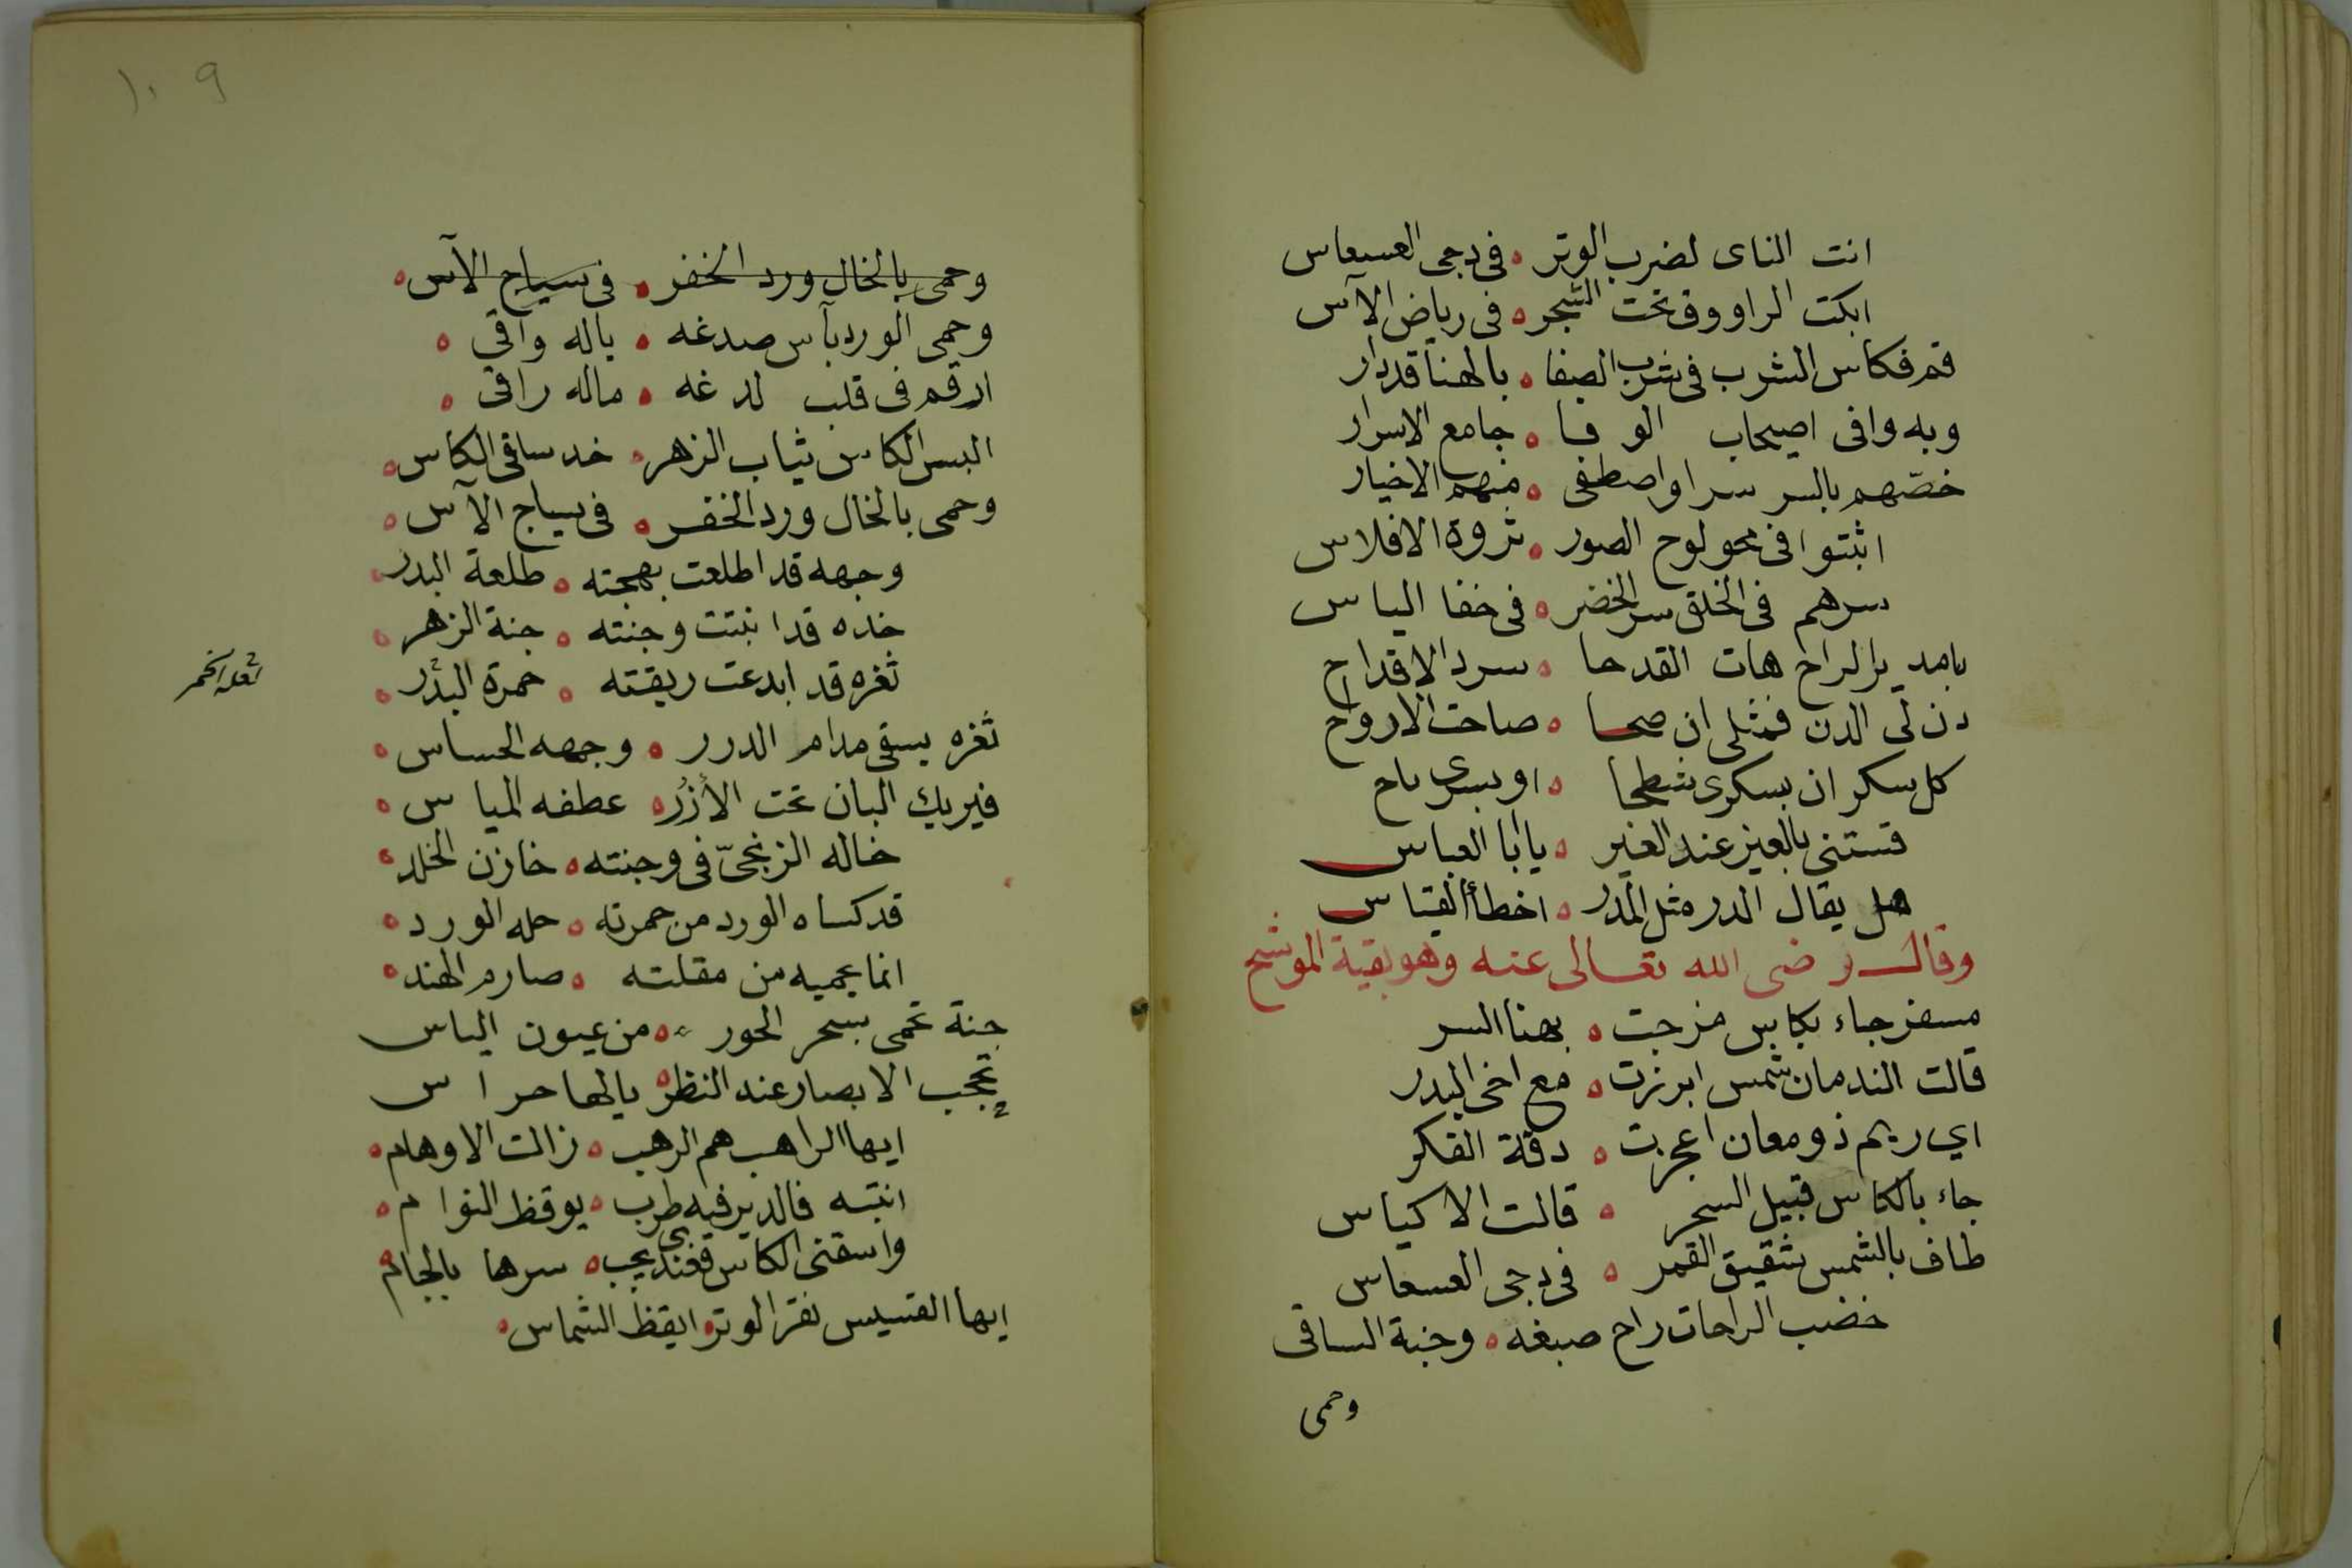 انت الناى لضرب الوتر ه فى دجى العسعاس
ابكت الراووق تحت الشجر ه فى رياض الآس
قم فكاس الشرب فى شرب الصفا ه بالهنا قد دار
وبه وافى اصيحاب الوفا ه جامع الاسرار
خصّهم بالسر سرا واصطفى ه منهم الاخيار
اثبتوا فى محو لوح الصور ه ثروة الافلاس
سرهم فى الخلق سر الخضر ه فى خفا الياس
يامدير الراح هات القدحا ه سرد الاقداح
دن لى الدن فمثلى ان صحا ه صاحت الارواح
كل سكران بسكرى شطحا ه او بسرى باح
قستنى بالغير عند الغير ه يا ابا العباس
هل يقال الدر مثل المدر ه اخطأ القياس
وقال رضى الله تعالى عنه وهو بقية الموشح
مسفر جاء بكاس مزجت ه بهنا السر
قالت الندمان شمس ابرزت ه مع اخى البدر
اي ريم ذو معان اعجزت ه دقة الفكر
جاء بالكاس قبيل السحر ه قالت الاكياس
طاف بالشمس شقيق القمر ه فى دجى العسعاس
خضب الراحات راح صبغه ه وجنة الساقى
وحمى
١٠ ٩
وحمى بالخال ورد الخفر ه فى سياج الآس ه
وحمى الورد بآس صدغه ه ياله واقى ه
ارقم فى قلب لدغه ه ماله راقى ه
البس الكاس ثياب الزهر ه خد ساقى الكاس ه
وحمى بالخال ورد الخفر ه فى سياج الآس ه
وجهه قد اطلعت بهجته ه طلعة البدر ه
خده قد انبتت وجنته ه جنة الزهر ه
ثغره قد ابدعت ريقته ه حمرة البدر ه
لعله الخمر
ثغره يسقى مدام الدرر ه وجهه الحساس ه
فيريك البان تحت الأزُر ه عطفه المياس ه
خاله الزنجىّ فى وجنته ه خازن الخلد ه
قد كساه الورد من حمرته ه حله الورد ه
انما يحميه من مقلته ه صارم الهند ه
جنة تحمى بسحر الحور ه من عيون الياس
تحجب الابصار عند النظر ه يالها حراس
ايها الراهب هم الرهب ه زالت الاوهام ه
انتبه فالدير فيه طرب ه يوقظ النوام ه
واسقنى الكاس فعندى يجب ه سرها بالجام ه
ايها القسيس نقر الوتر ه ايقظ الشماس ه